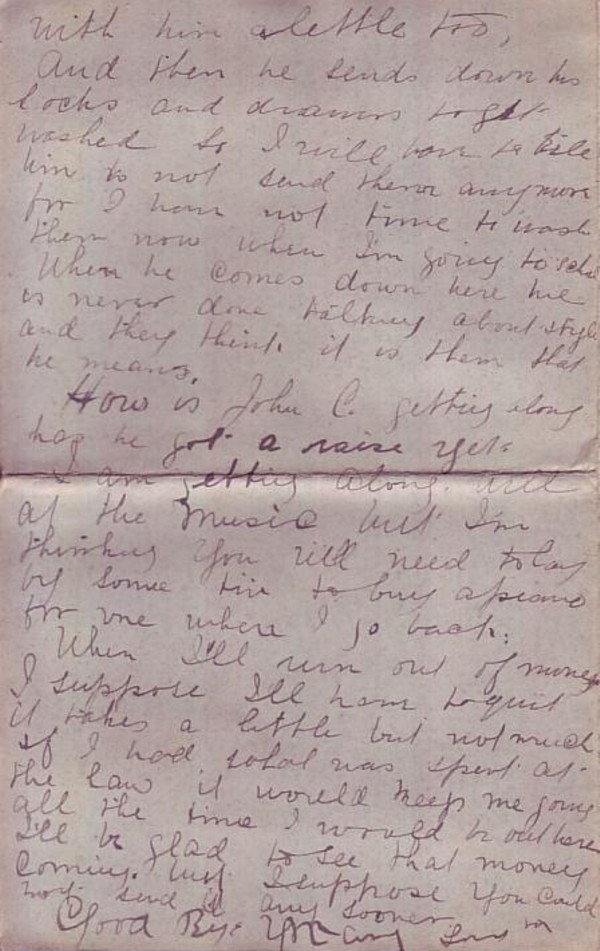 with him a lettle too,
And then he sends down his
locks and drawers to get
washed so I will have to tile
him to not send them anymore
for I have not time to wash
them now when I'm going to schol
When he comes down here he
is never done talking about style
and they think it is them that
he means.
How is John C. getting along
has he got a raise yet.
I am getting along well
at the music but I'm
thinking you will need to lay
by some tin to buy a peano
for me where I go back.
When I'll run out of money
I suppose Ill have to quit
it takes a little but not much
If I had what was spent at
the law it would keep me going
all the time I would be out here
I'll be glad to see that money
coming. but I suppose you could
not send it any sooner
Good Bye